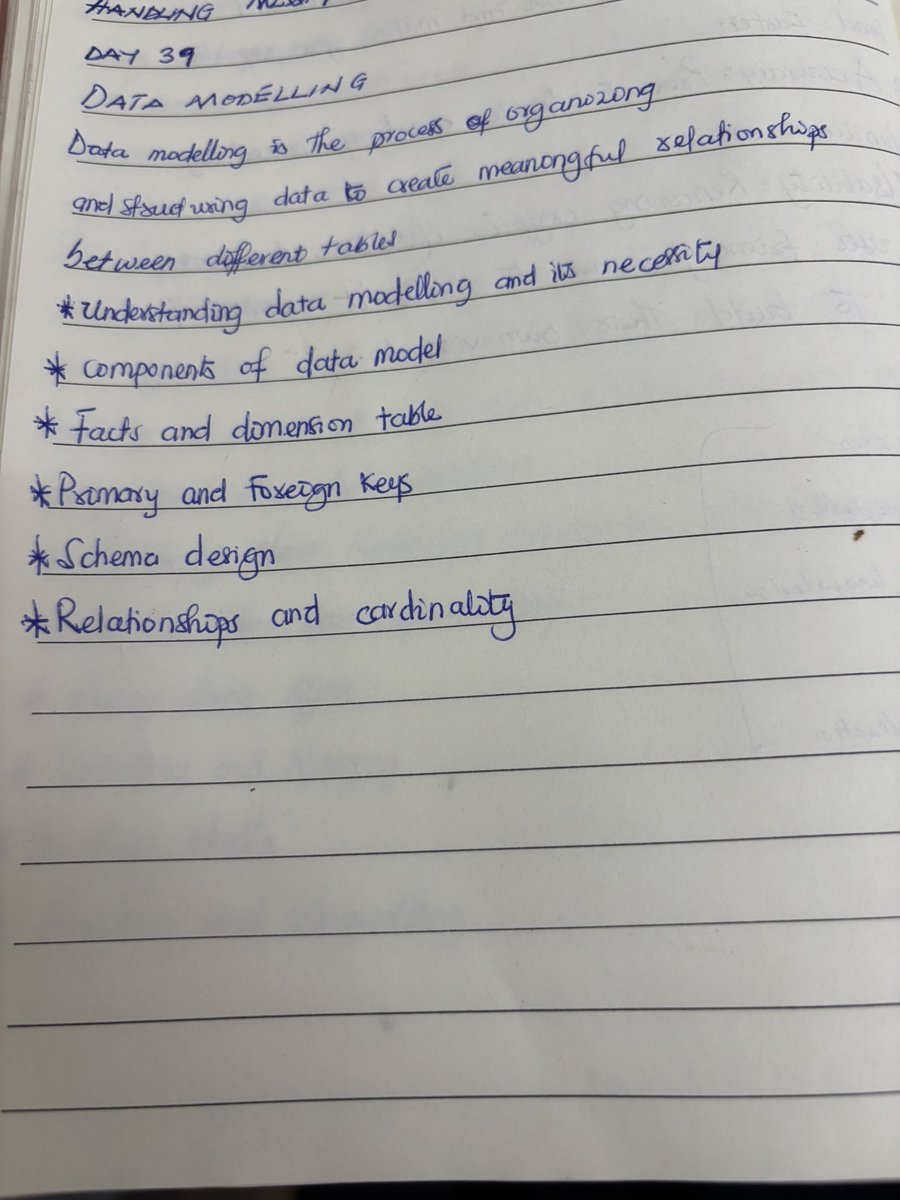 HANDLING
DAY 39
DATA MODELLING
Data modelling is the process of organizing
and structuring data to create meaningful relationships
between different tables
* Understanding data modelling and its necessity
* Components of data model
* Facts and dimension table
* Primary and Foreign Keys
* Schema design
* Relationships and cardinality